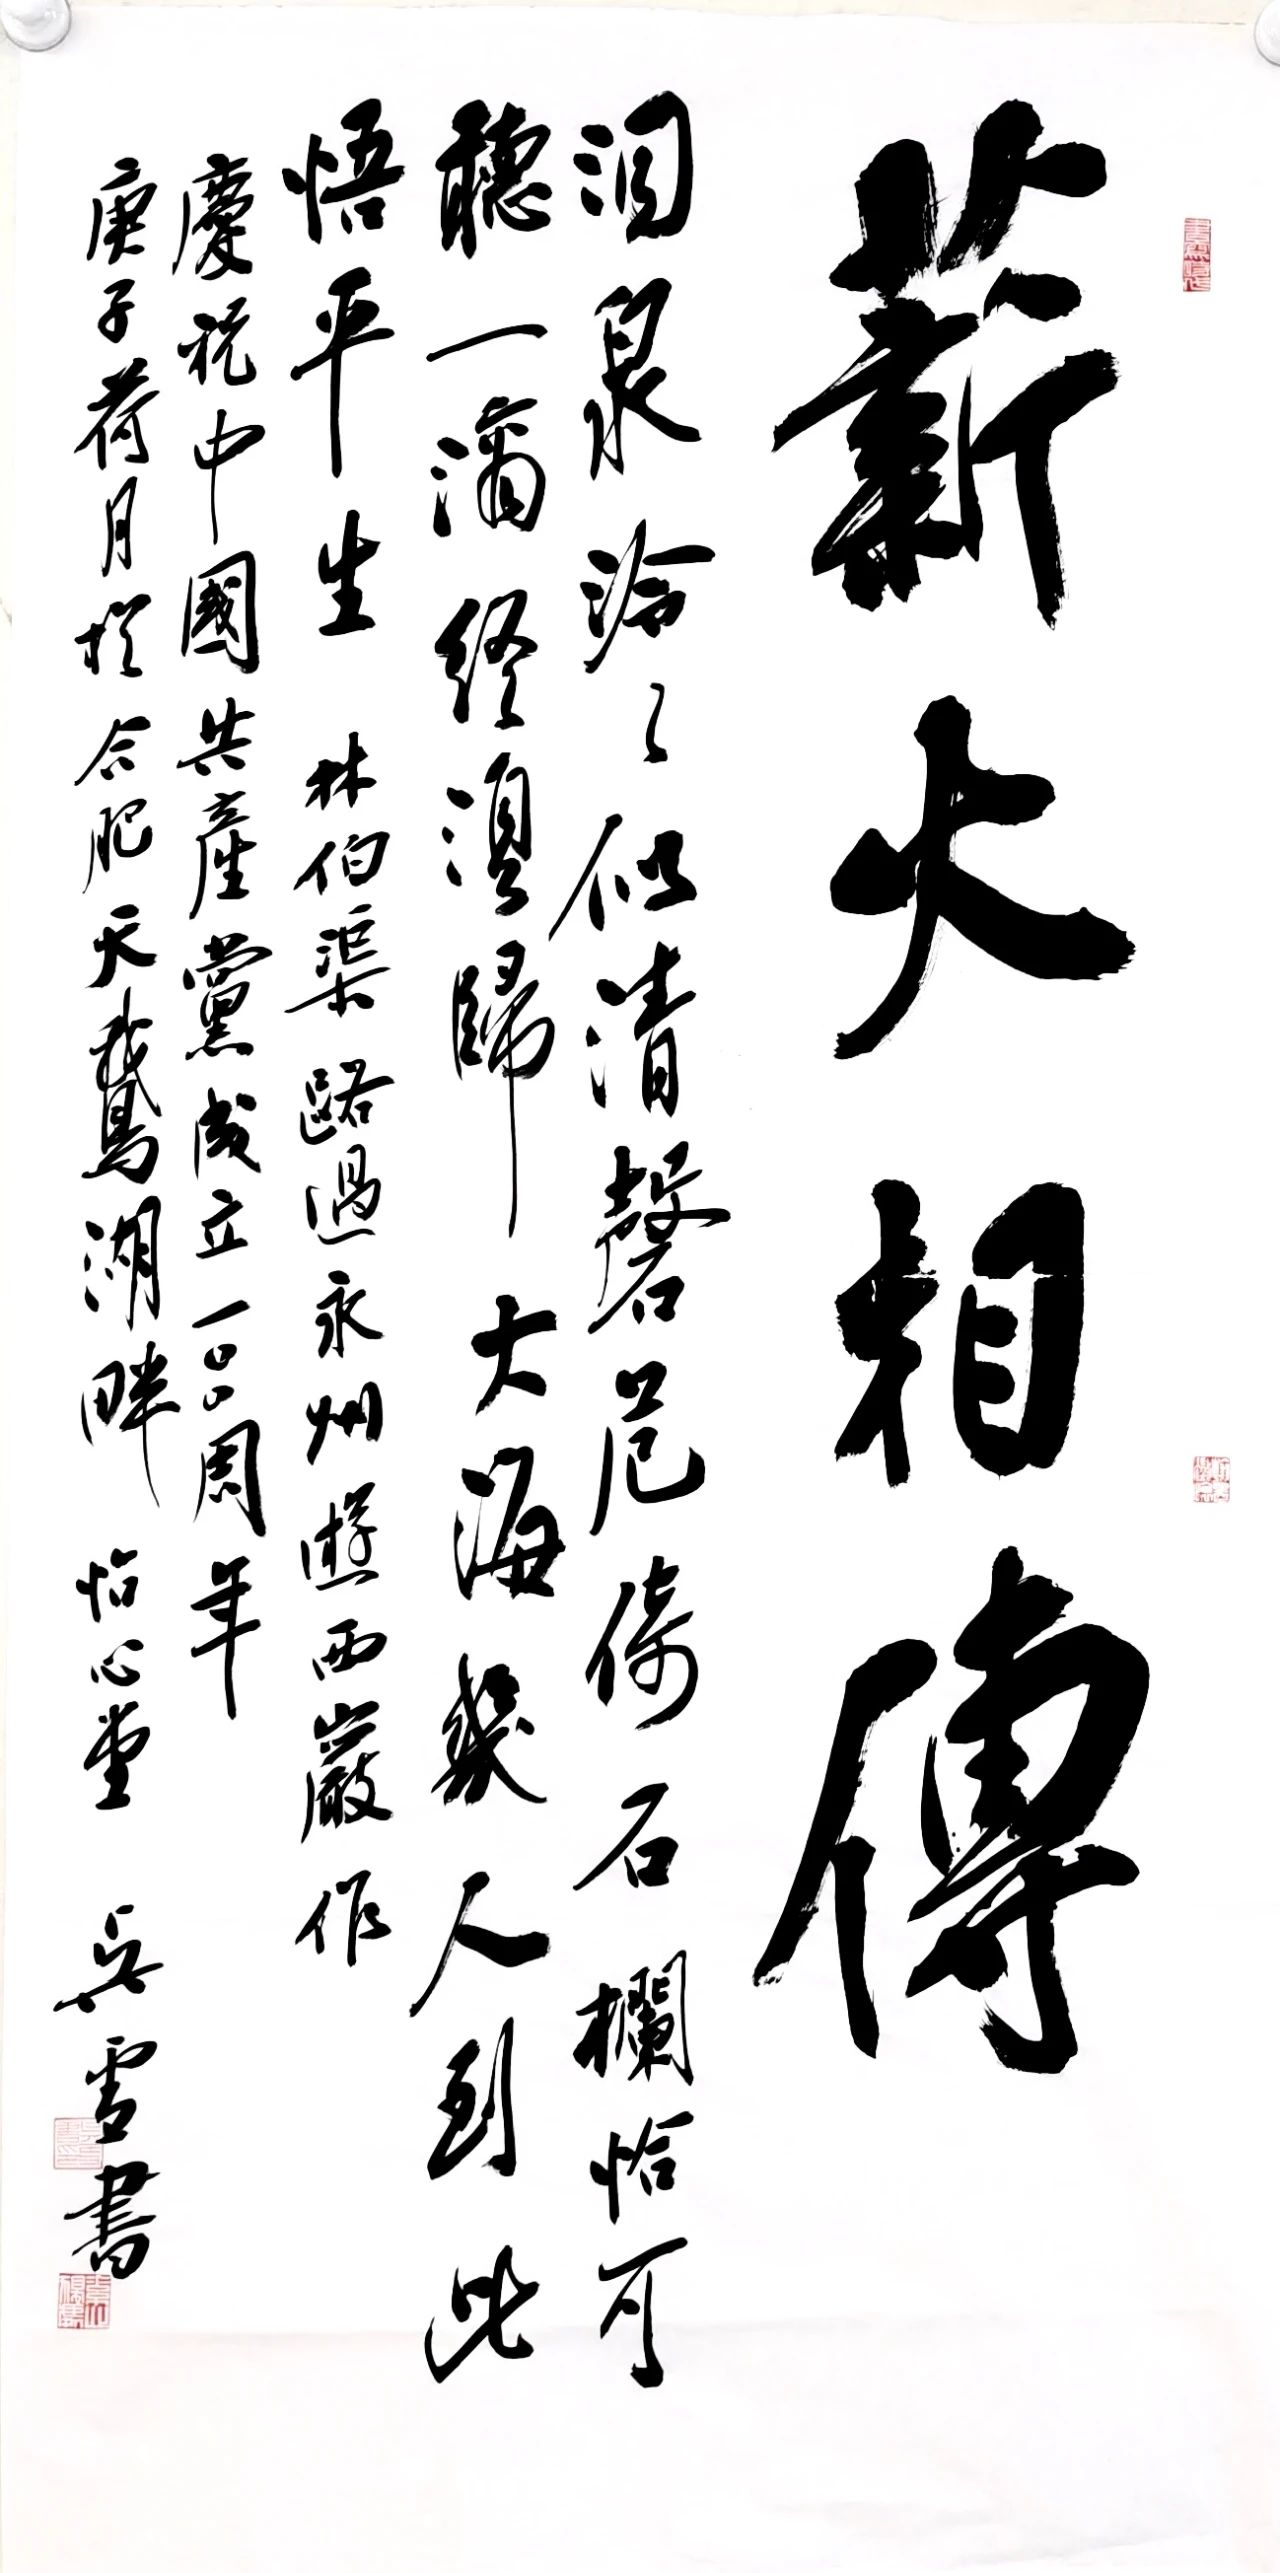 薪火相傳
澗泉泠々似清磬倚石欄恰可
聽一滴終湏歸大海幾人到此
悟平生 林伯渠 路過永州遊西巖作
慶祝中國共産黨成立一〇〇周年
庚子荷月於合肥天鵝湖畔 怡心堂 吳雪書